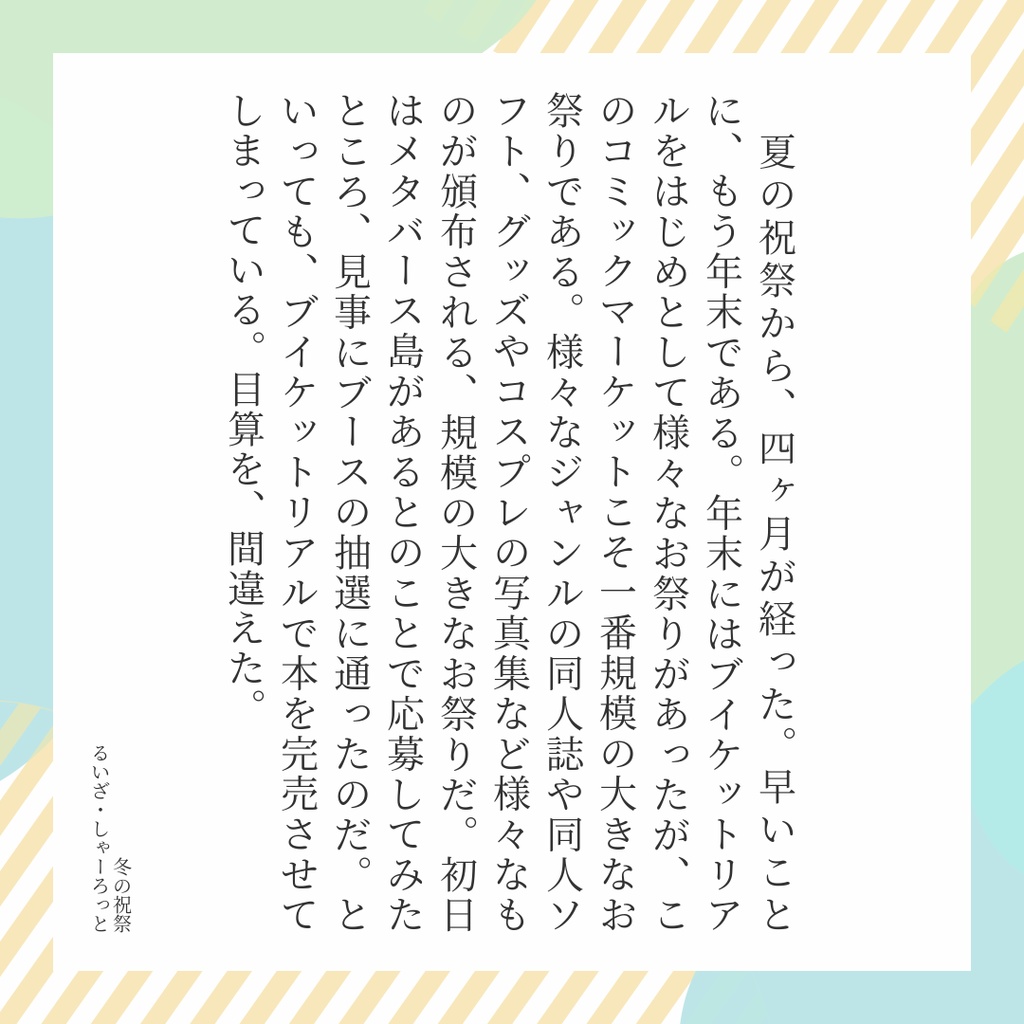 夏の祝祭から、四ヶ月が経った。早いこと
に、もう年末である。年末にはブイケットリア
ルをはじめとして様々なお祭りがあったが、こ
のコミックマーケットこそ一番規模の大きなお
祭りである。様々なジャンルの同人誌や同人ソ
フト、グッズやコスプレの写真集など様々なも
のが頒布される、規模の大きなお祭りだ。初日
はメタバース島があるとのことで応募してみた
ところ、見事にブースの抽選に通ったのだ。と
いっても、ブイケットリアルで本を完売させて
しまっている。目算を、間違えた。
冬の祝祭
るいざ・しゃーろっと